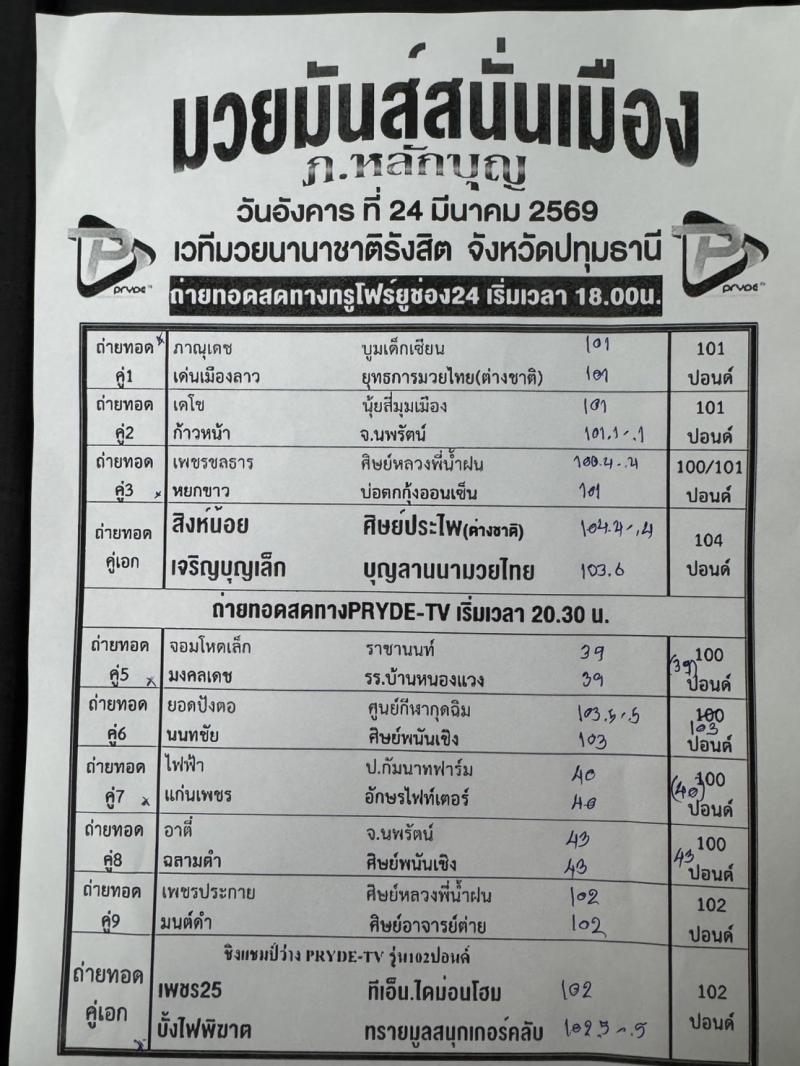 มวยมันส์สนั่นเมือง
ภ.หลักบุญ
วันอังคาร ที่ 24 มีนาคม 2569
เวทีมวยนานาชาติรังสิต จังหวัดปทุมธานี
PRYDE TV
PRYDE TV
ถ่ายทอดสดทางทรูโฟร์ยูช่อง24 เริ่มเวลา 18.00น.
ถ่ายทอด ภาณุเดช บูมเด็กเซียน 101 101
คู่1 เด่นเมืองลาว ยุทธการมวยไทย(ต่างชาติ) 101 ปอนด์
ถ่ายทอด เดโช นุ้ยสี่มุมเมือง 101 101
คู่2 ก้าวหน้า จ.นพรัตน์ 101.1-.1 ปอนด์
ถ่ายทอด เพชรชลธาร ศิษย์หลวงพี่น้ำฝน 100.4-.4 100/101
คู่3 หยกขาว บ่อตกกุ้งออนเซ็น 101 ปอนด์
ถ่ายทอด สิงห์น้อย ศิษย์ประไพ(ต่างชาติ) 104.4-.4 104
คู่เอก เจริญบุญเล็ก บุญลานนามวยไทย 103.6 ปอนด์
ถ่ายทอดสดทางPRYDE-TV เริ่มเวลา 20.30 น.
ถ่ายทอด จอมโหดเล็ก ราชานนท์ 39 100
คู่5 มงคลเดช รร.บ้านหนองแวง 39 (39) ปอนด์
ถ่ายทอด ยอดปังตอ ศูนย์กีฬากุดฉิม 103.5-.5 100
คู่6 นนทชัย ศิษย์พนันเชิง 103 103 ปอนด์
ถ่ายทอด ไฟฟ้า ป.กัมนาทฟาร์ม 40 100
คู่7 แก่นเพชร อักษรไฟท์เตอร์ 40 (40) ปอนด์
ถ่ายทอด อาตี่ จ.นพรัตน์ 43 100
คู่8 ฉลามดำ ศิษย์พนันเชิง 43 43 ปอนด์
ถ่ายทอด เพชรประกาย ศิษย์หลวงพี่น้ำฝน 102 102
คู่9 มนต์ดำ ศิษย์อาจารย์ต่าย 102 ปอนด์
ชิงแชมป์ว่าง PRYDE-TV รุ่น102ปอนด์
ถ่ายทอด เพชร25 ทีเอ็น.ไดม่อนโฮม 102 102
คู่เอก บั้งไฟพิฆาต ทรายมูลสนุกเกอร์คลับ 102.5-.5 ปอนด์